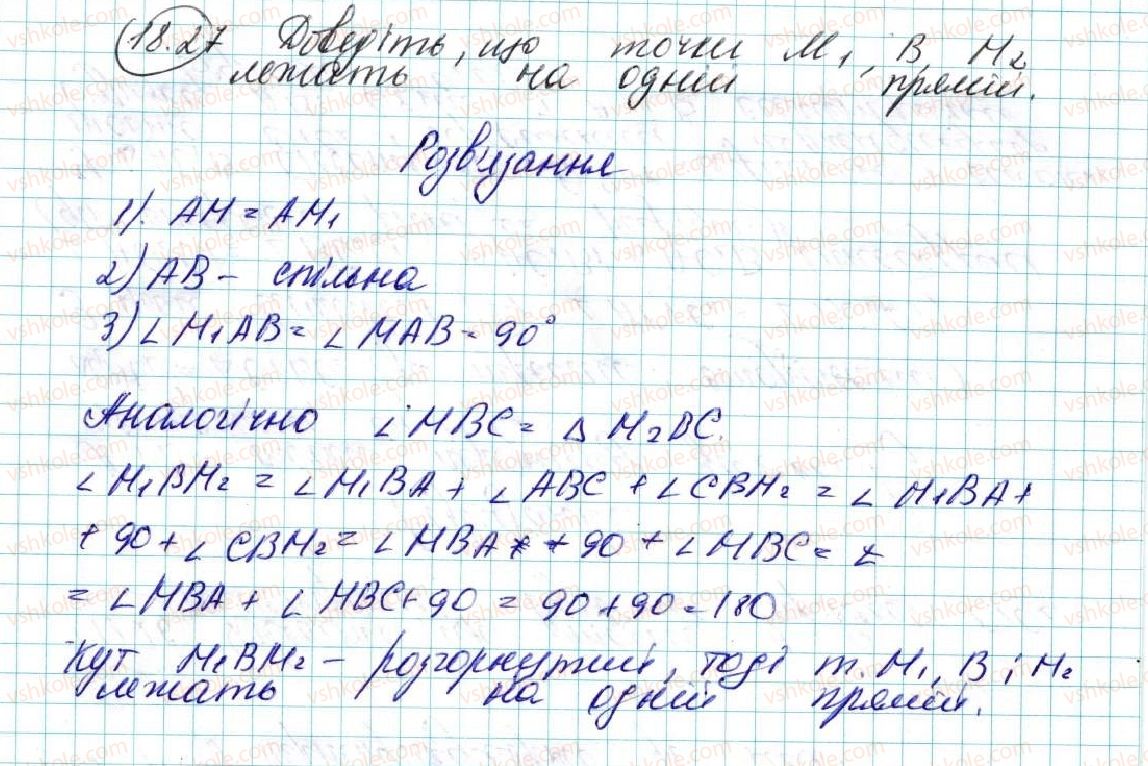 18.27 Доведіть, що точки M₁, B, M₂
лежать на одній прямій.
Розв'язання
1). AM = AM₁
2) AB – спільна
3) ∠ M₁AB = ∠ MAB = 90°
Аналогічно ∠ MBC = △ M₂BC.
∠ M₁BM₂ = ∠ M₁BA + ∠ ABC + ∠ CBM₂ = ∠ M₁BA +
+ 90 + ∠ CBM₂ = ∠ MBA + + 90 + ∠ MBC =
= ∠ MBA + ∠ MBC + 90 = 90 + 90 = 180
Кут M₁BM₂ – розгорнутий, тоді т. M₁, B і M₂
лежать на одній прямій.
vshkole.com